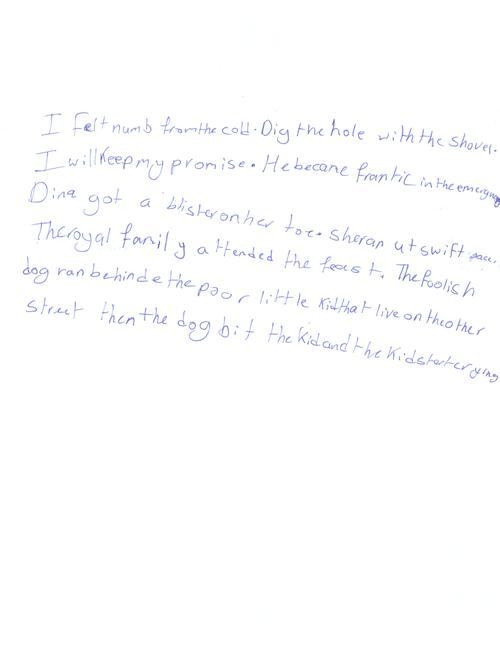 I felt numb from the cold. Dig the hole with the shovel.
I will keep my promise. He became frantic in the emergncy
Dina got a blister on her toe. She ran ut swift pace.
The royal family attended the feast. The foolish
dog ran behinde the poor little kid that live on the other
street then the dog bit the kid and the kid start crying